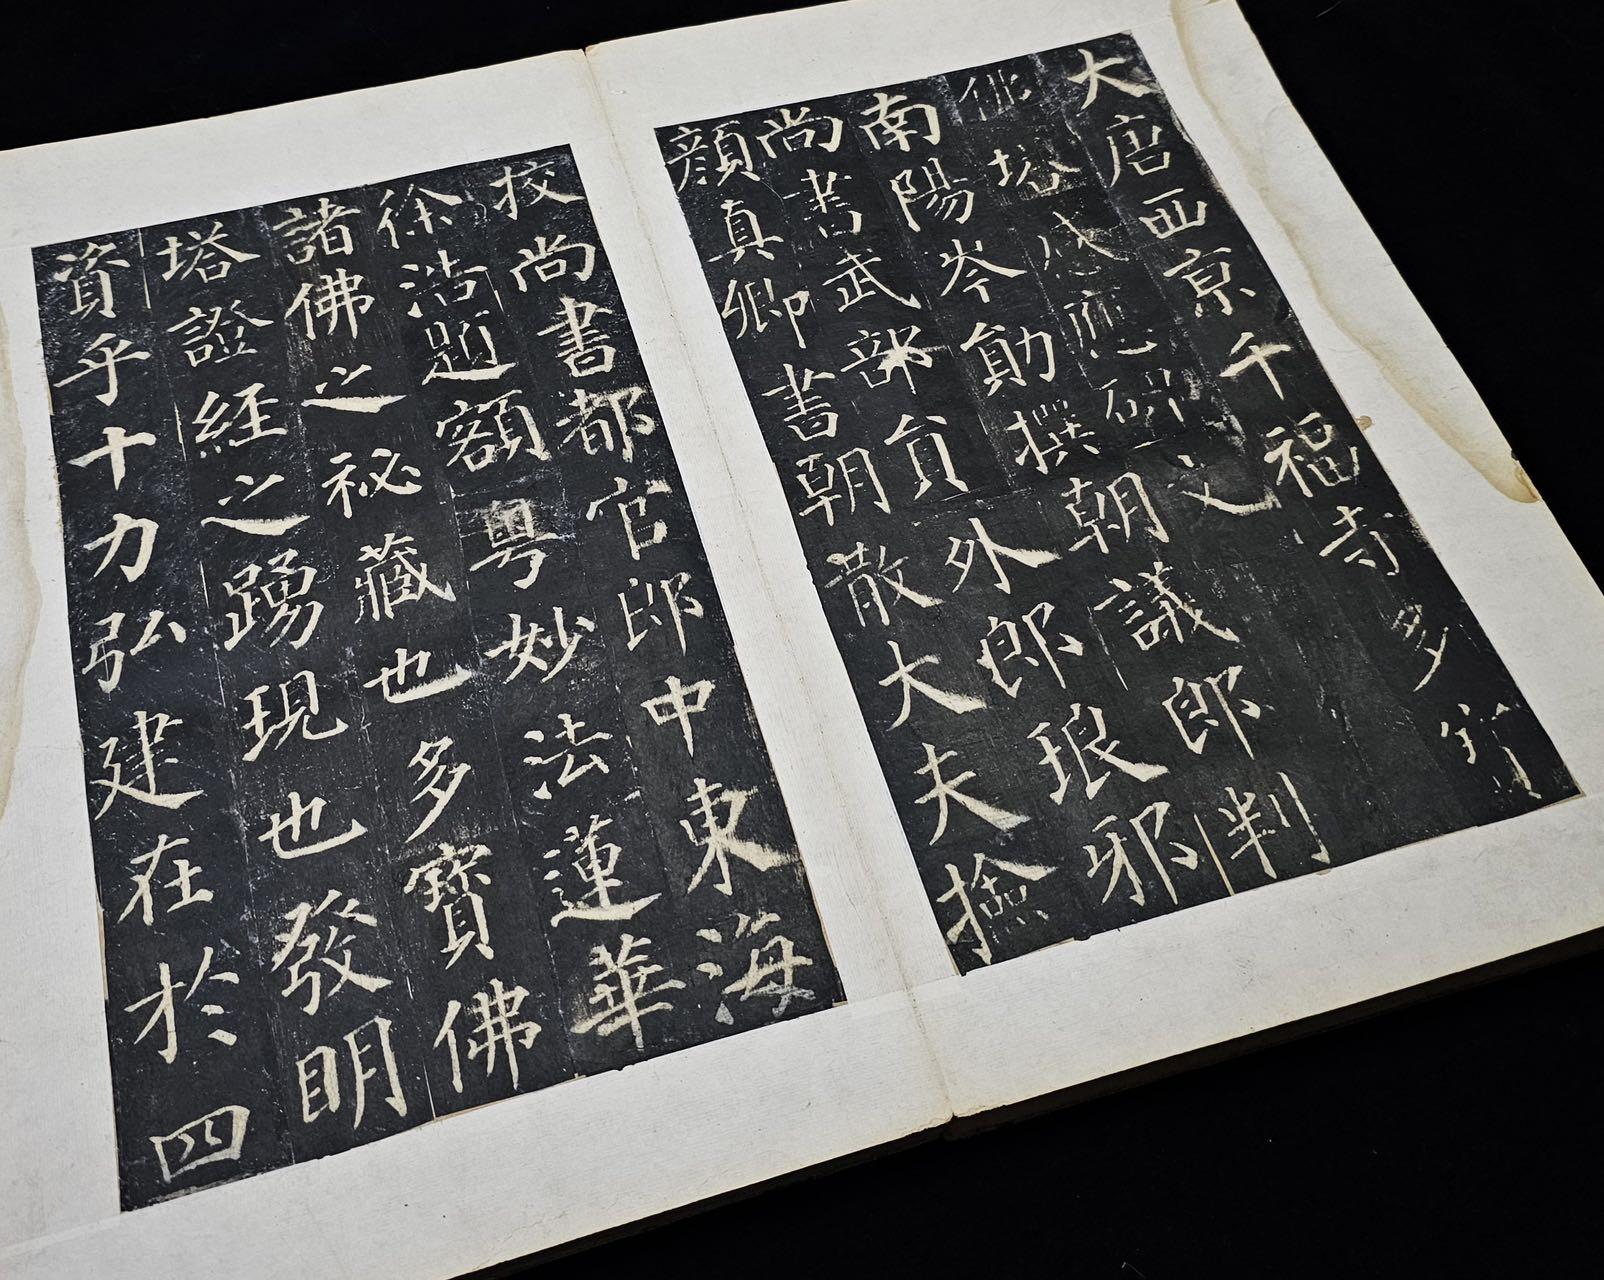 大唐西京千福寺多寶
佛塔感應碑文
南陽岑勛撰朝議郎判
尚書武部員外郎琅邪
顏真卿書朝散大夫撿
挍尚書都官郎中東海
徐浩題額粵妙法蓮華
諸佛之秘藏也多寶佛
塔證經之踴現也發明
資乎十力弘建在於四